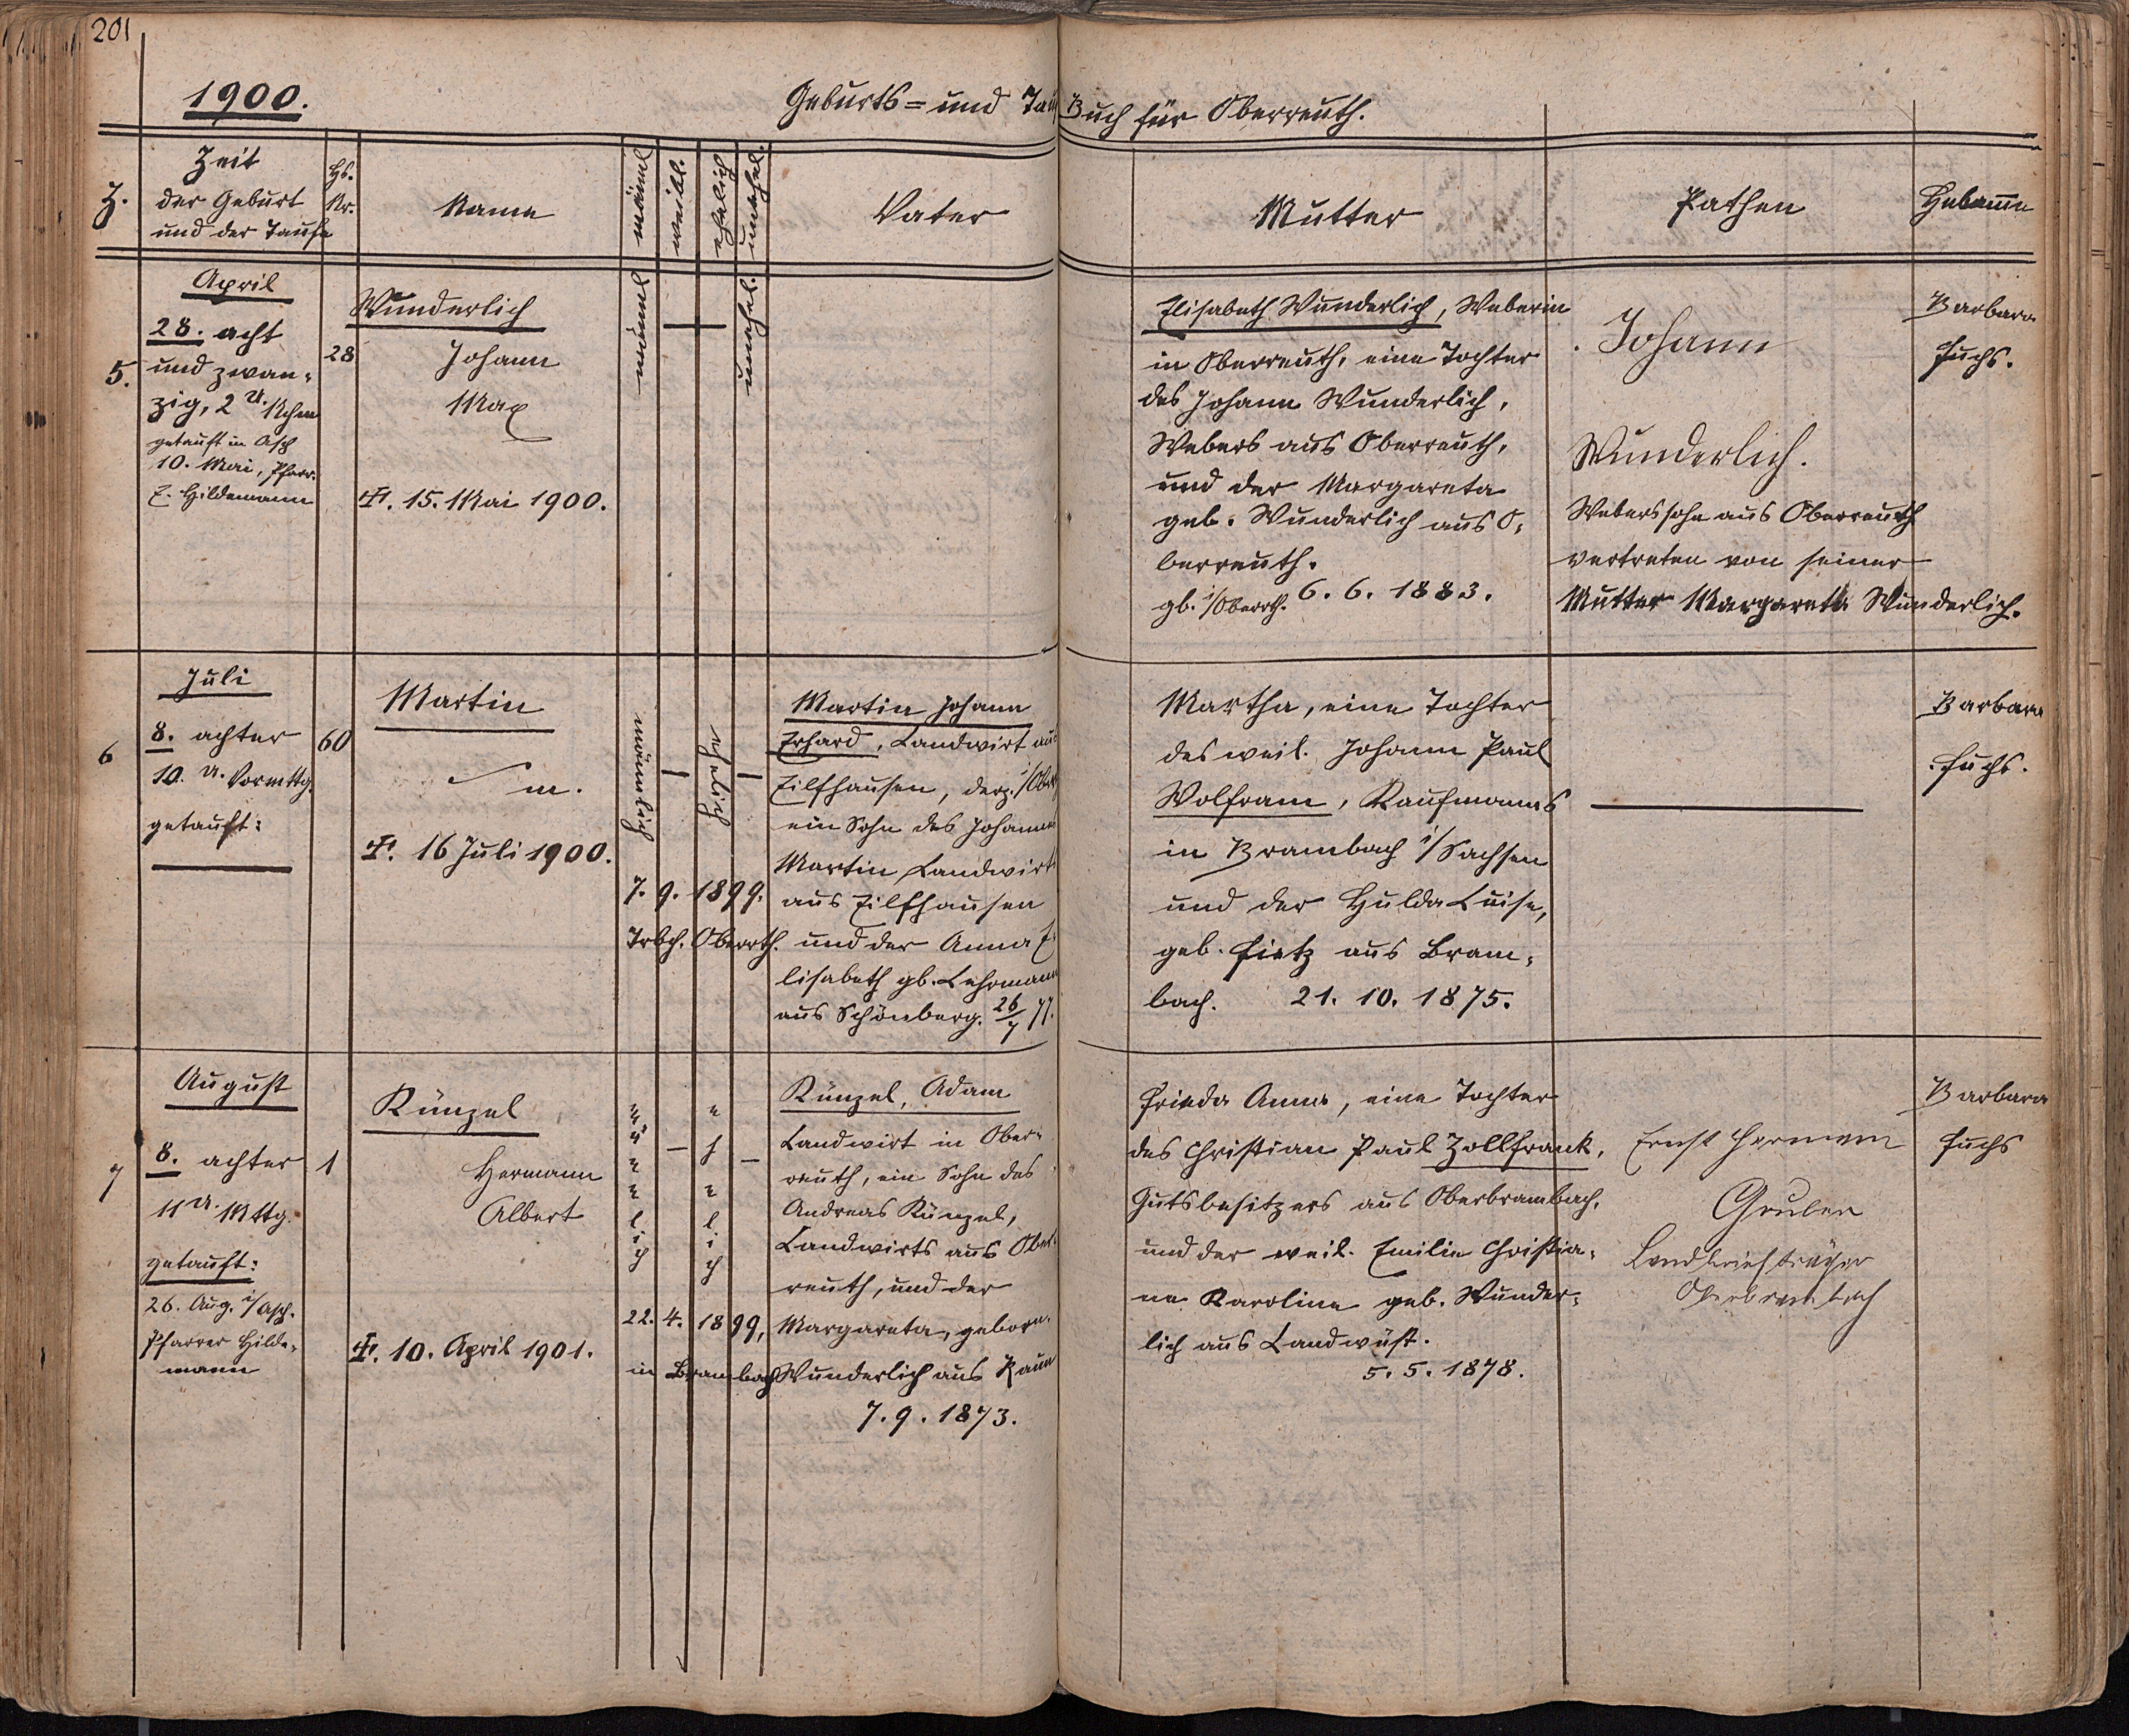 201
1900.
Geburts= und Tauf Buch für Oberreuth.
Z.
Zeit
der Geburt
und der Taufe
Hs.
Nr.
Name
männl
weibl.
ehelich
unehel.
Vater
Mutter
Pathen
Hebamme
5.
April
28. acht
und zwan-
zig, 2 U. Nchm
getauft in Asch
10. Mai, Pfarr.
E. Hildemann
28
Wunderlich
Johann
Max
†. 15. Mai 1900.
männl
unehel.
Elisabeth Wunderlich, Weberin
in Oberreuth, eine Tochter
des Johann Wunderlich,
Webers aus Oberreuth,
und der Margareta
geb. Wunderlich aus O-
berreuth.
gb. i/Oberrth. 6. 6. 1883.
Johann
Wunderlich.
Weberssohn aus Oberreuth
vertreten von seiner
Mutter Margareta Wunderlich.
Barbara
Fuchs.
6
Juli
8. achter
10. U. Vormttg.
getauft:
60
Martin
m.
†. 16 Juli 1900.
männlich
ehelich
7. 9. 1899.
Trbch. Oberrth.
Martin Johann
Erhard, Landwirt aus
Eilfhausen, derz. i/Ober
ein Sohn des Johannes
Martin Landwirts
aus Eilfhausen
und der Anna E-
lisabeth gb. Lehrmann
aus Schönberg. 26/7 77.
Martha, eine Tochter
des weil. Johann Paul
Wolfram, Kaufmanns
in Brambach i/Sachsen
und der Hulda Luise,
geb. Fietz aus Bram-
bach. 21. 10. 1875.
Barbara
Fuchs.
7
August
8. achter
11 U. Mttg.
getauft:
26. Aug. i/Asch.
Pfarrer Hilde-
mann
1
Künzel
Hermann
Albert
†. 10. April 1901.
männlich
ehelich
22. 4. 1899,
in Brambach
Künzel, Adam
Landwirt in Ober-
reuth, ein Sohn des
Andreas Künzel,
Landwirts aus Ober-
reuth, und der
Margareta, geborn.
Wunderlich aus Raun
7. 9. 1873.
Frieda Anna, eine Tochter
des Christian Paul Zollfrank,
Gutsbesitzers aus Oberbrambach,
und der weil. Emilie Christia-
ne Karoline geb. Wunder-
lich aus Landwüst.
5. 5. 1878.
Ernst Hermann
Gruber
Landbriefträger
Oberbrambach
Barbara
Fuchs